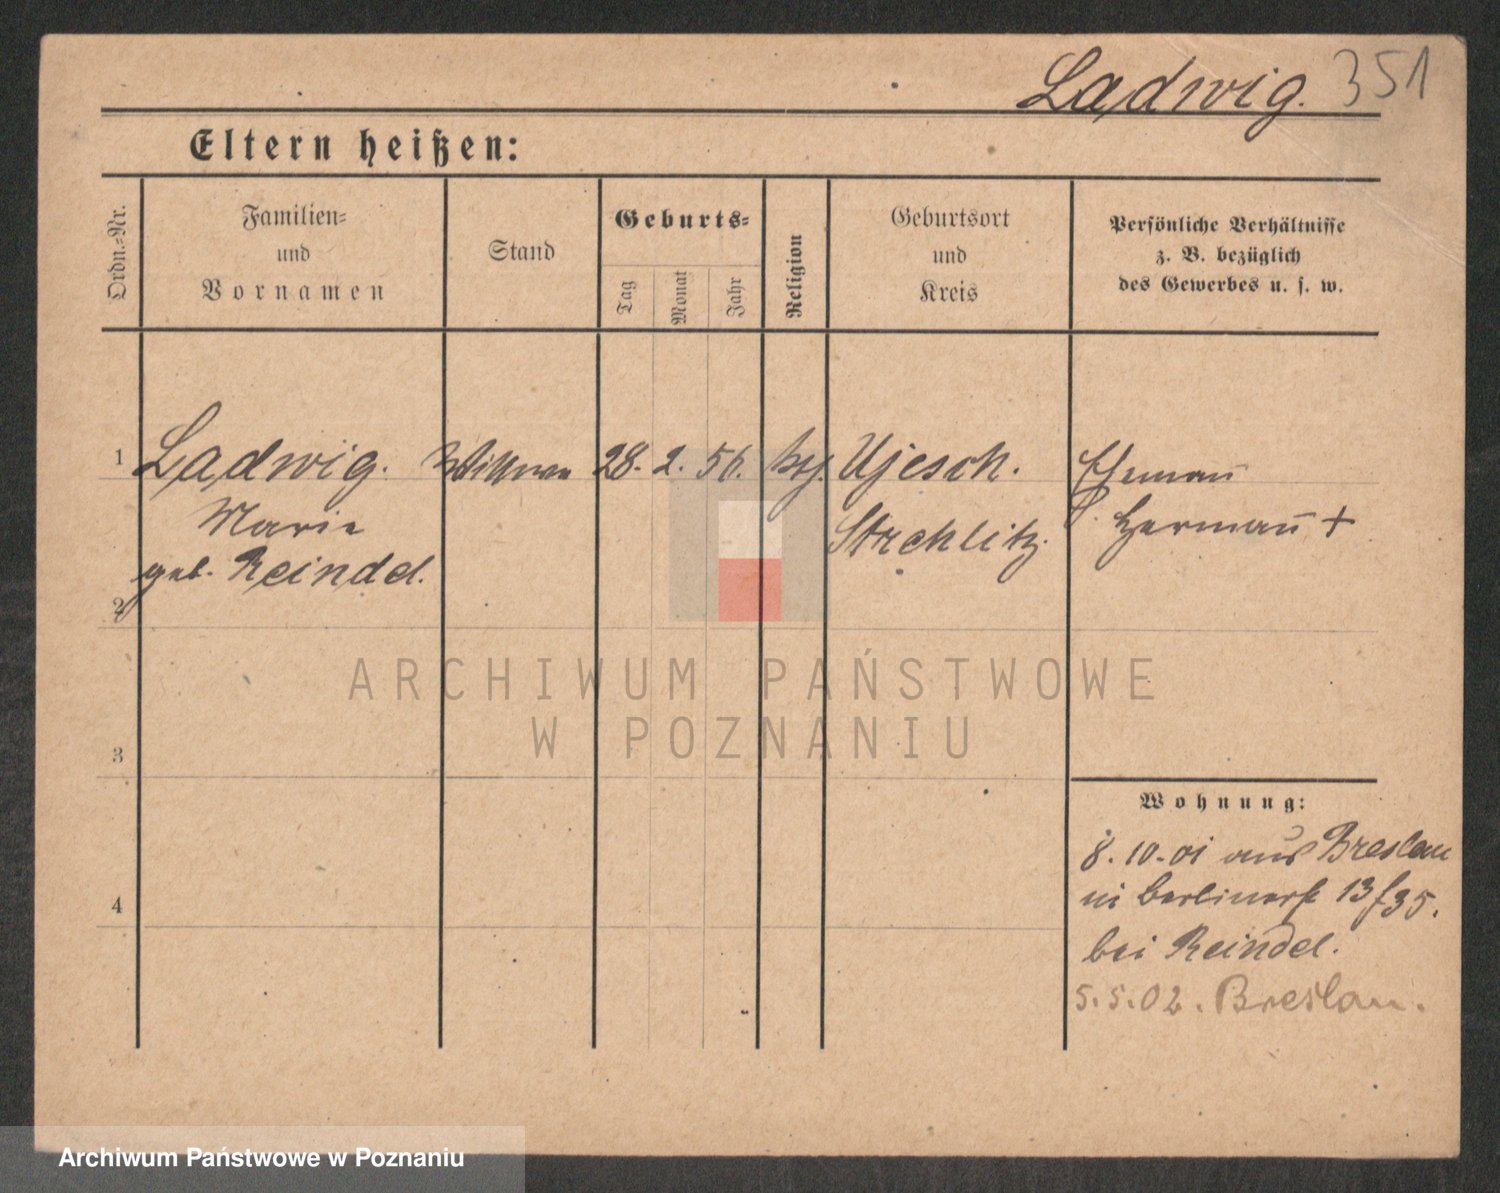 Ladwig. 351
Eltern heißen:
Ordn.=Nr.
Familien=
und
Vornamen
Stand
Geburts=
Tag
Monat
Jahr
Religion
Geburtsort
und
Kreis
Persönliche Verhältnisse
z. B. bezüglich
des Gewerbes u. s. w.
1 Ladwig. Wittwe 28. 2. 56. Ujesch. Ehemañ
Marie Strehlitz. Hermañ +
geb. Reindel.
2
3
4
Wohnung:
8.10.01 aus Breslau
in Berlinerst 13/35.
bei Reindel.
5.5.02. Breslau.
ARCHIWUM PAŃSTWOWE
W POZNANIU
Archiwum Państwowe w Poznaniu